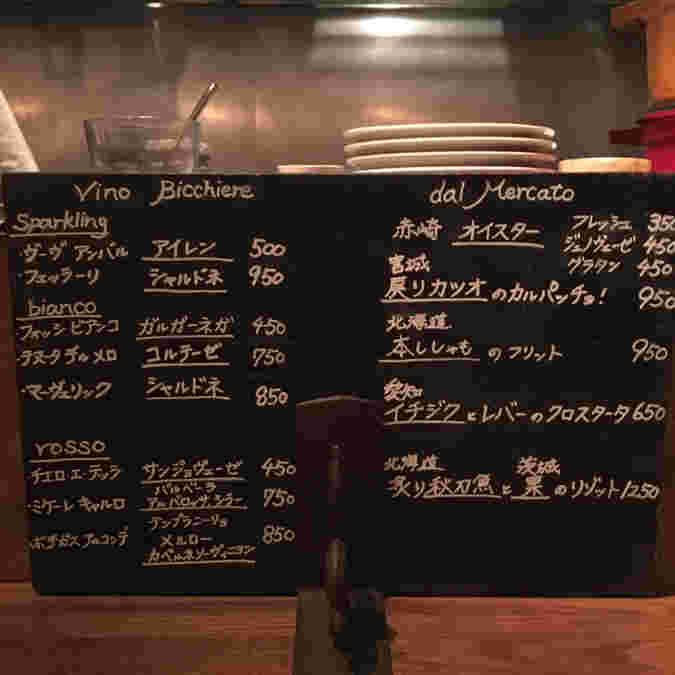 Vino Bicchiere
Sparkling
・ヴーヴ アンバル アイレン 500
・フェッラーリ シャルドネ 950
bianco
フォッシ ビアンコ ガルガーネガ 450
・テヌータ デル メロ コルテーゼ 750
・マーヴェリック シャルドネ 850
rosso
チェロ・エ・テッラ サンジョヴェーゼ 450
バルベーラ
・ミケーレ キャルロ 750
テンプラニーリョ
・ボデガス アルコンデ メルロー 850
カベルネソーヴィニヨン
dal Mercato
赤崎 オイスター フレッシュ 350
ジェノヴェーゼ 450
グラタン 450
宮城
戻りカツオのカルパッチョ! 950
北海道
本ししゃものフリット 950
愛知
イチジクとレバーのクロスタータ 650
北海道 茨城
炙り秋刀魚と栗のリゾット 1250